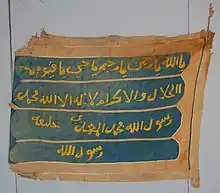 يا الله يا رحمن يا رحيم يا حي يا قيوم يا ذا
الجلال والاكرام لا اله الا الله محمد
رسول الله محمد المهدى خليفة
رسول الله